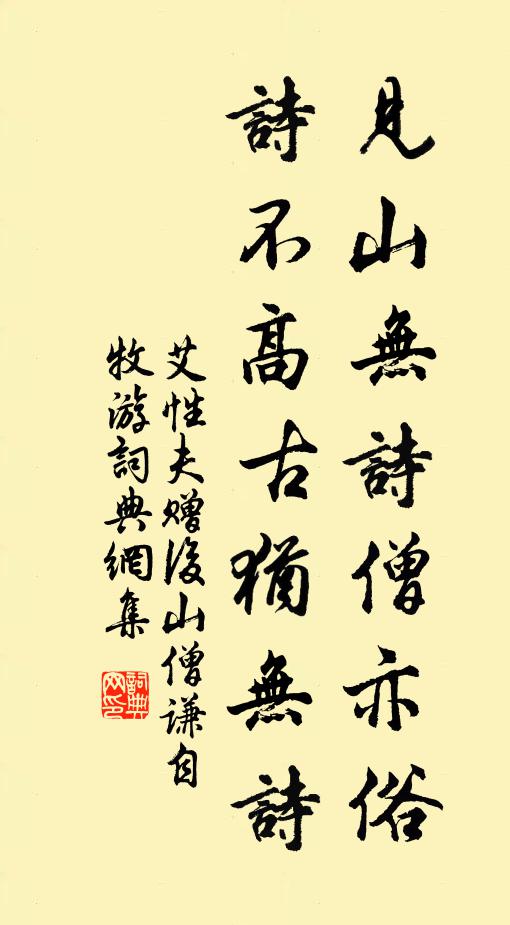 見山無詩僧亦俗
詩不高古猶無詩
艾性夫贈後山僧謙自
牧游詞典網集
詞典
网印